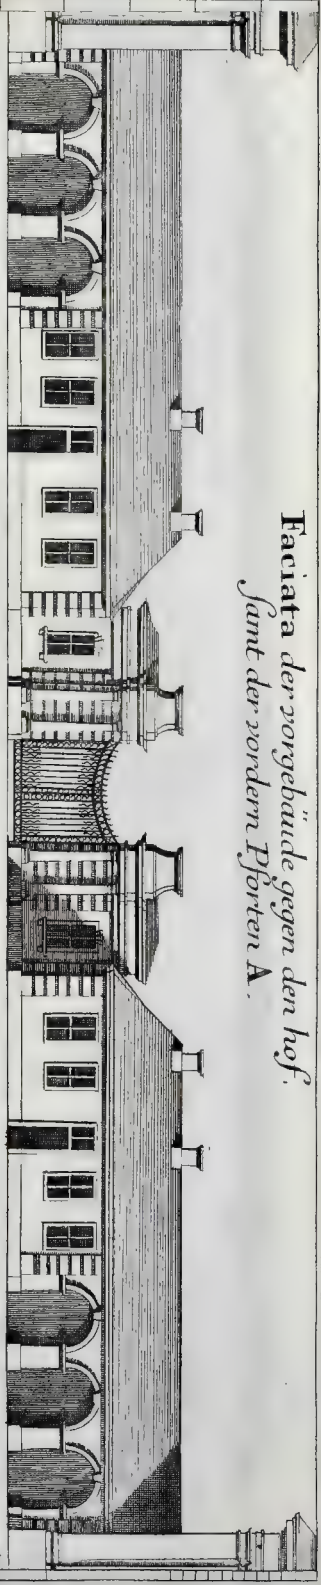 Faciata der vorgebäude gegen den hof.
samt der vordern Pforten A.